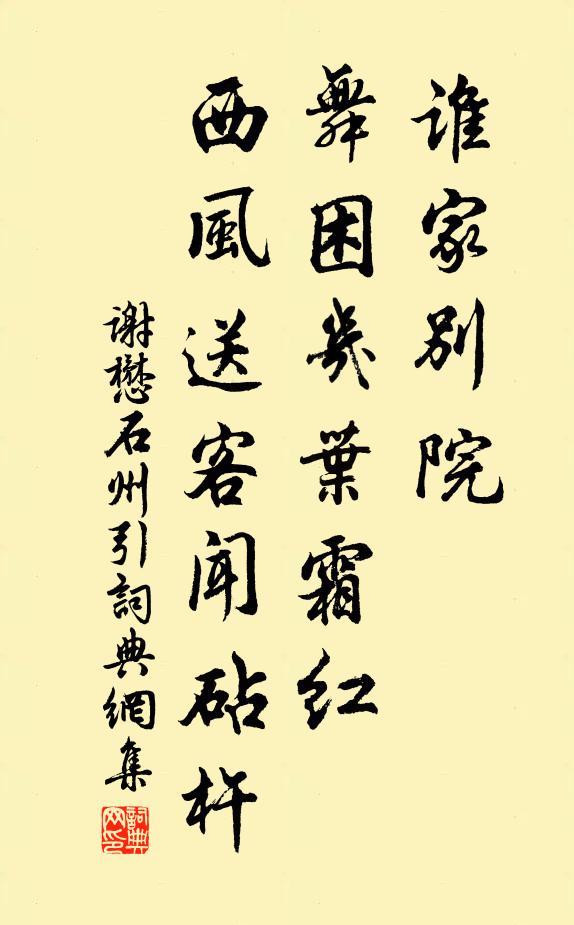 誰家別院
舞困幾葉霜紅
西風送客聞砧杵
謝懋石州引詞典網集
詞典
网印